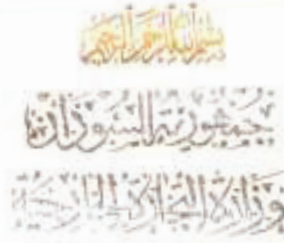 بسم الله الرحمن الرحيم
جمهورية السودان
وزارة التجارة الخارجية